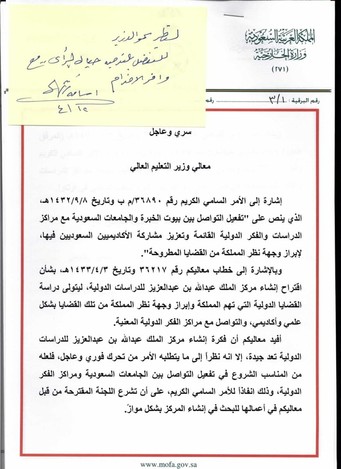 لنظر سمو الوزير
للتفضل
مع
وافر الاحترام
المملكة العربية السعودية
وزارة الخارجية
(٢٧١)
رقم البرقية : ٣/١٠
سري وعاجل
معالي وزير التعليم العالي
إشارة إلى الأمر السامي الكريم رقم ٣٦٨٩٠/م ب وتاريخ ١٤٣٢/٩/٨هـ،
الذي ينص على "تفعيل التواصل بين بيوت الخبرة والجامعات السعودية مع مراكز
الدراسات والفكر الدولية القائمة وتعزيز مشاركة الأكاديميين السعوديين فيها،
لإبراز وجهة نظر المملكة من القضايا المطروحة".
وبالإشارة إلى خطاب معاليكم رقم ٣٦٢١٧ وتاريخ ١٤٣٣/٤/٣هـ، بشأن
اقتراح إنشاء مركز الملك عبدالله بن عبدالعزيز للدراسات الدولية، ليتولى دراسة
القضايا الدولية التي تهم المملكة وإبراز وجهة نظر المملكة من تلك القضايا بشكل
علمي وأكاديمي، والتواصل مع مراكز الفكر الدولية المعنية.
أفيد معاليكم أن فكرة إنشاء مركز الملك عبدالله بن عبدالعزيز للدراسات
الدولية تعد جيدة، إلا انه نظراً إلى ما يتطلبه الأمر من تحرك فوري وعاجل، فلعله
من المناسب الشروع في تفعيل التواصل بين الجامعات السعودية ومراكز الفكر
الدولية، وذلك انفاذاً للأمر السامي الكريم، على أن تشرع اللجنة المقترحة من قبل
معاليكم في أعمالها للبحث في إنشاء المركز بشكل موازٍ.
www.mofa.gov.sa